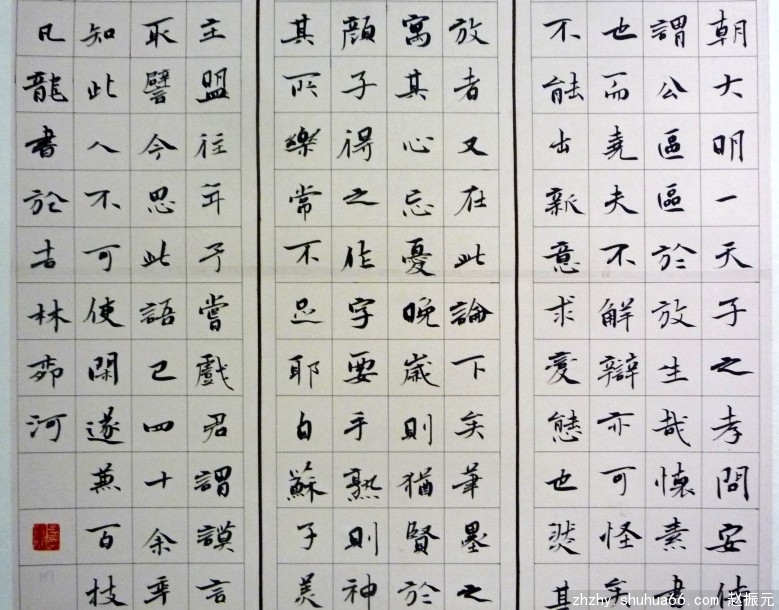 朝大明一天子之孝問安侍
謂公區區於放生哉懷素書
也而堯夫不解辯亦可怪矣
不能出新意求變態也然其
放者又在此論下矣筆墨之
寓其心忘憂晚歲則猶賢於
顏子得之作字要手熟則神
其所樂常不足耶自蘇子美
主盟往年予嘗戲君謂謨言
取譬今思此語已四十余年
知此人不可使閑遂兼百技
凡龍書於吉林
河
zhzhy.shuhua66.com 赵振元